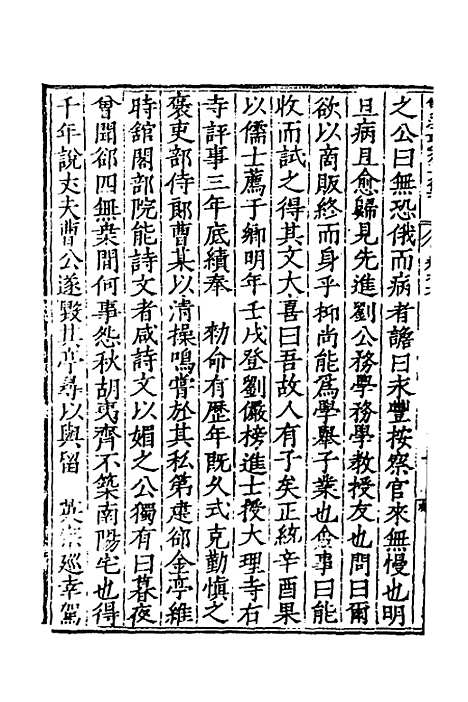 之公曰無恐俄而病者譫曰永豐按察官來無慢也明
旦病且愈歸見先進劉公務學務學教授友也問曰爾
欲以商販終而身乎抑尚能為學舉子業也僉事曰能
收而試之得其文大喜曰吾故人有子矣正統辛酉果
以儒士薦于鄉明年壬戌登劉儼榜進士授大理寺右
寺評事三年底績奉 勑命有歷年既久式克勤慎之
褒吏部侍郎曹某以清操鳴嘗於其私第建郤金亭維
時舘閣部院能詩文者咸詩文以媚之公獨有曰暮夜
曾聞郤四無桒間何事怨秋胡夷齊不築南陽宅也得
千年說丈夫曹公遂毀其亭尋以與留 英宗巡幸駕